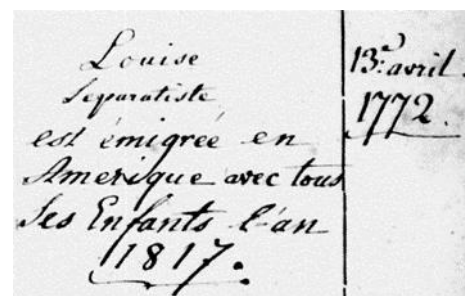 Louise
Separatiste
est émigrée en
Amerique avec tous
Ses Enfants l'an
1817.
13.e avril
1772.